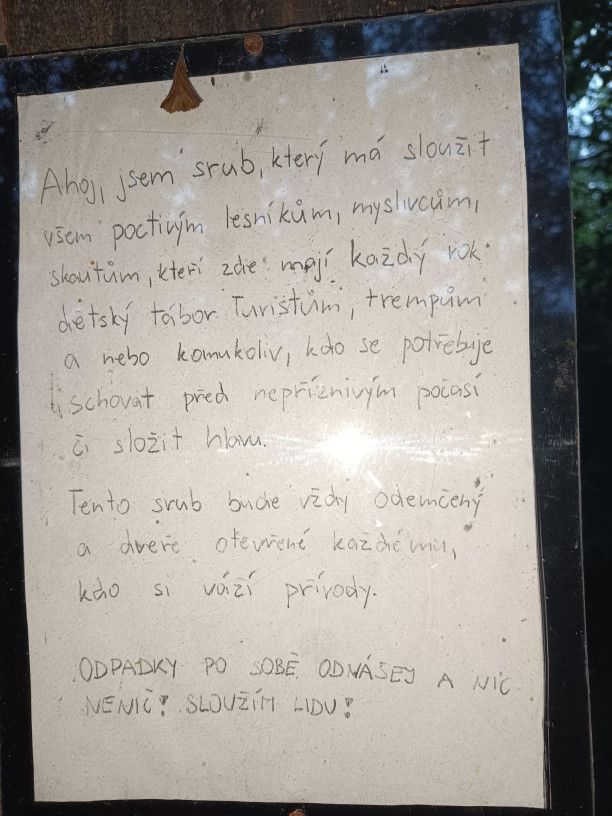 Ahoj, jsem srub, který má sloužit
všem poctivým lesníkům, myslivcům,
skautům, kteří zde mají každý rok
dětský tábor. Turistům, trempům
a nebo komukoliv, kdo se potřebuje
schovat před nepříznivým počasí
či složit hlavu.
Tento srub bude vždy odemčený
a dveře otevřené každému,
kdo si váží přírody.
ODPADKY PO SOBĚ ODNÁŠEJ A NIC
NENIČ! SLOUŽÍM LIDU!